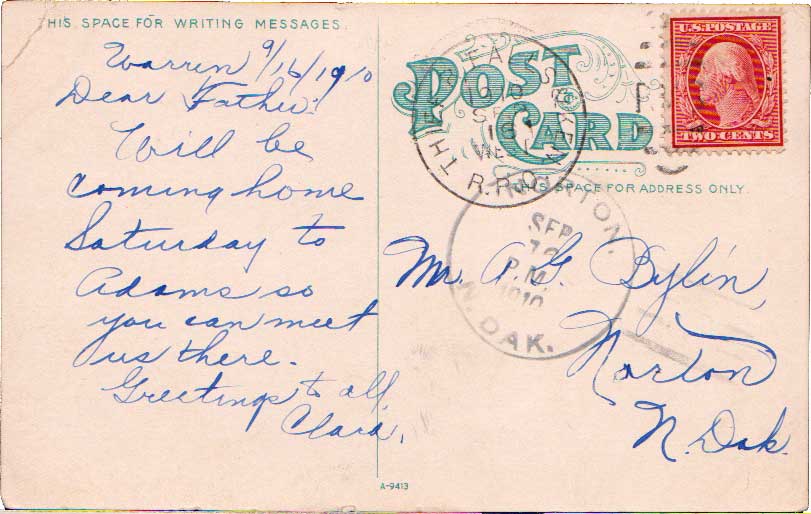 THIS SPACE FOR WRITING MESSAGES.
Warren 9/16/1910
Dear Father!
Will be
coming home
Saturday to
Adams so
you can meet
us there.
Greetings to all,
Clara.
POST
CARD
U.S. POSTAGE
TWO CENTS
SEP
16
R.P.O.
THIS SPACE FOR ADDRESS ONLY.
NORTON,
SEP
P.M.
1910
N. DAK.
Mr. A. G. Bylin,
Norton
N. Dak.
A-9413